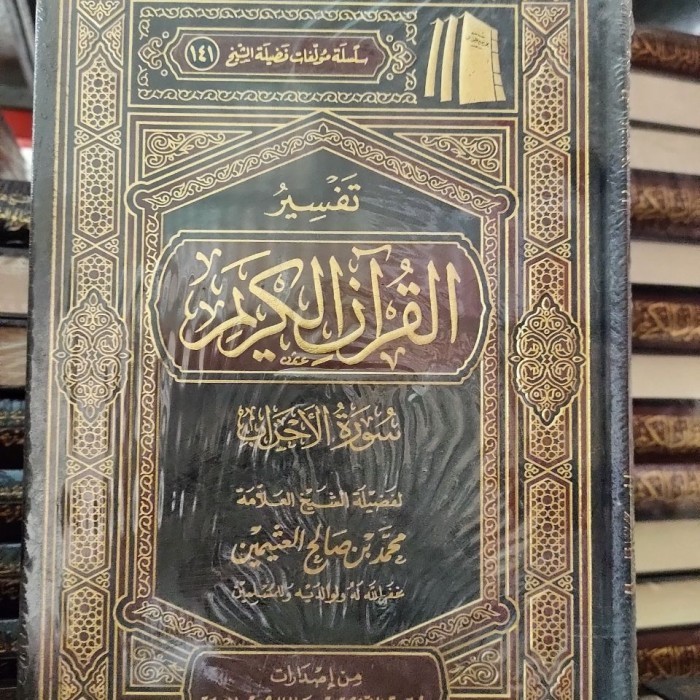 سلسلة مؤلفات فضيلة الشيخ ١٤١
تَفْسِيرُ
القُرآنِ الكَرِيمِ
سُورَةُ الأَحْزَاب
لفضيلة الشيخ العلّامة
محمّد بن صالح العثيمين
غفر الله له ولوالديه وللمسلمين
من إصدارات